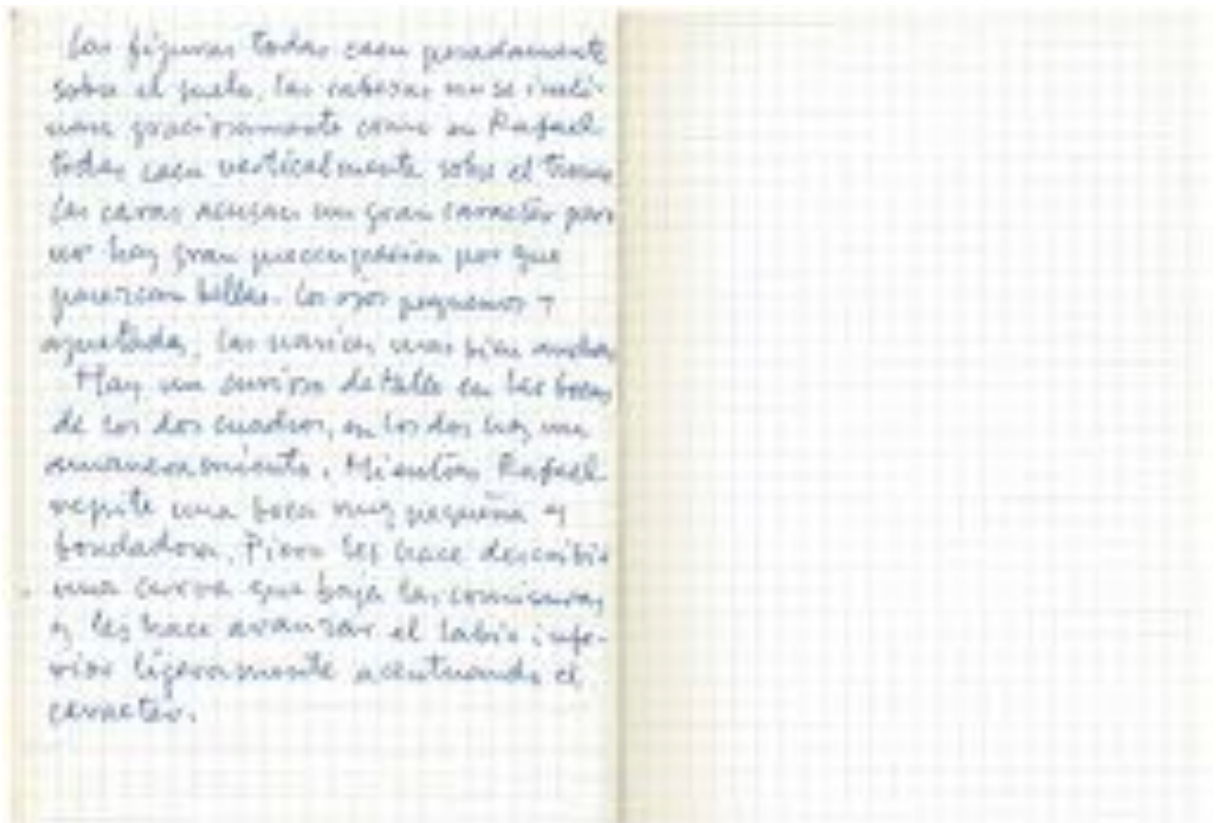 Las figuras todas caen pesadamente
sobre el suelo, las cabezas no se incli-
nan graciosamente como en Rafael
todas caen verticalmente sobre el tronco
Las caras acusan un gran caracter pero
no hay gran preocupación por que
parezcan bellas. Los ojos pequeños y
apretados, las narices mas bien anchas
Hay un curioso detalle en las bocas
de los dos cuadros, en los dos hay un
amaneramiento. Mientras Rafael
repite una boca muy pequeña y
bondadosa, Piero les hace describir
una curva que baja las comisuras
y les hace avanzar el labio infe-
rior ligeramente acentuando el
caracter.